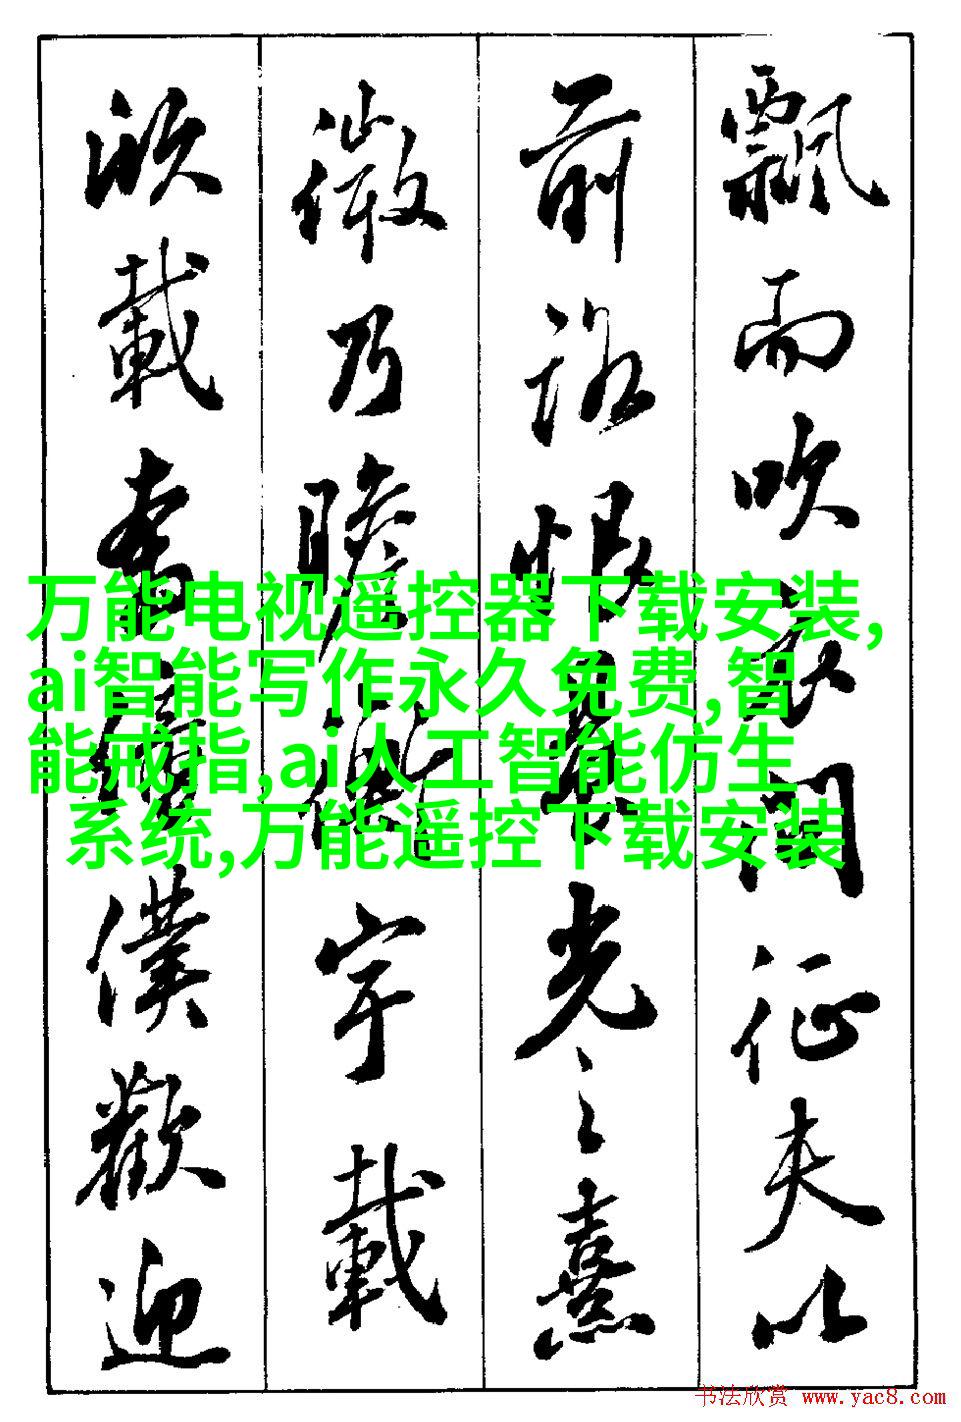 飄而吹衣問征夫以
前路恨晨光之熹
微乃瞻衡宇載
欣載奔僮僕歡迎
万能电视遥控器下载安装,
ai智能写作永久免费,智
能戒指,ai人工智能仿生
系统,万能遥控下载安装
书法欣赏 www.yac8.com